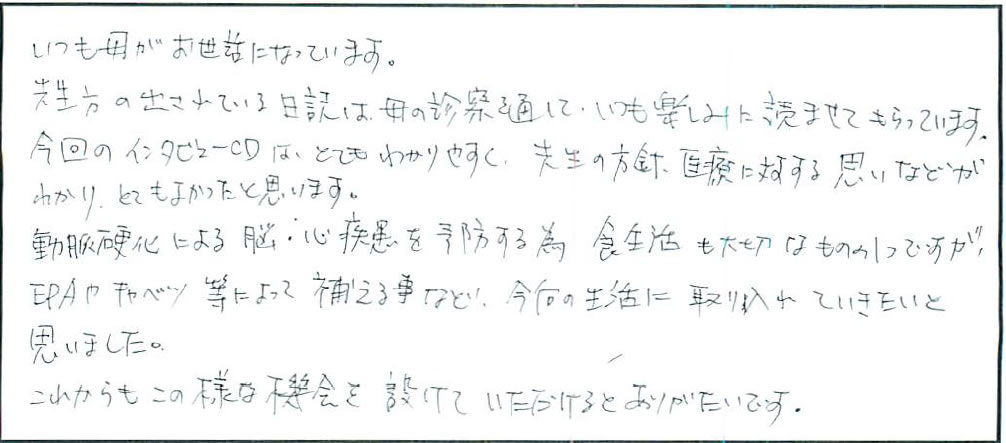 いつも母がお世話になっています。
先生方の出されている日誌は、母の診察を通して、いつも楽しみに読ませてもらっています。
今回のインタビューCDは、とてもわかりやすく、先生の方針、医療に対する思いなどが
わかり、とてもよかったと思います。
動脈硬化による脳・心疾患を予防する為 食生活も大切なものの1つですが、
EPAやキャベツ等によって補える事など、今后の生活に取り入れていきたいと
思いました。
これからもこの様な機会を設けていただけるとありがたいです。